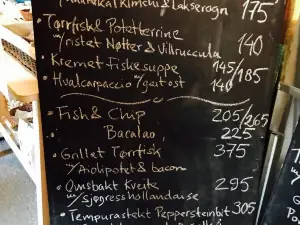 Kimchi & Lakserogn 175
• Tørrfisk & Potetterrine
w/ristet Nøtter & Villruccula 140
• Kremet Fiskesuppe 145/185
• Hvalcarpaccio w/geitost 140
• Fish & Chip 205/265
• Bacalao, 225
• Grillet Tørrfisk 375
w/Aiolipotet & bacon
• Ovnsbakt Kveite 295
w/sjøgresshollandaise
• Tempurastekt Peppersteinbit 305